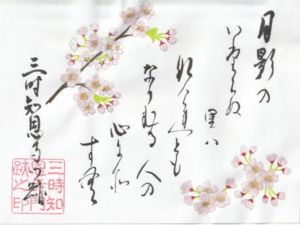 月影の
いたらぬ
里ハ
なけれとも
なかむる人の
心にそ
すむ
三時知恩寺門跡
三時知
恩寺門
跡之印